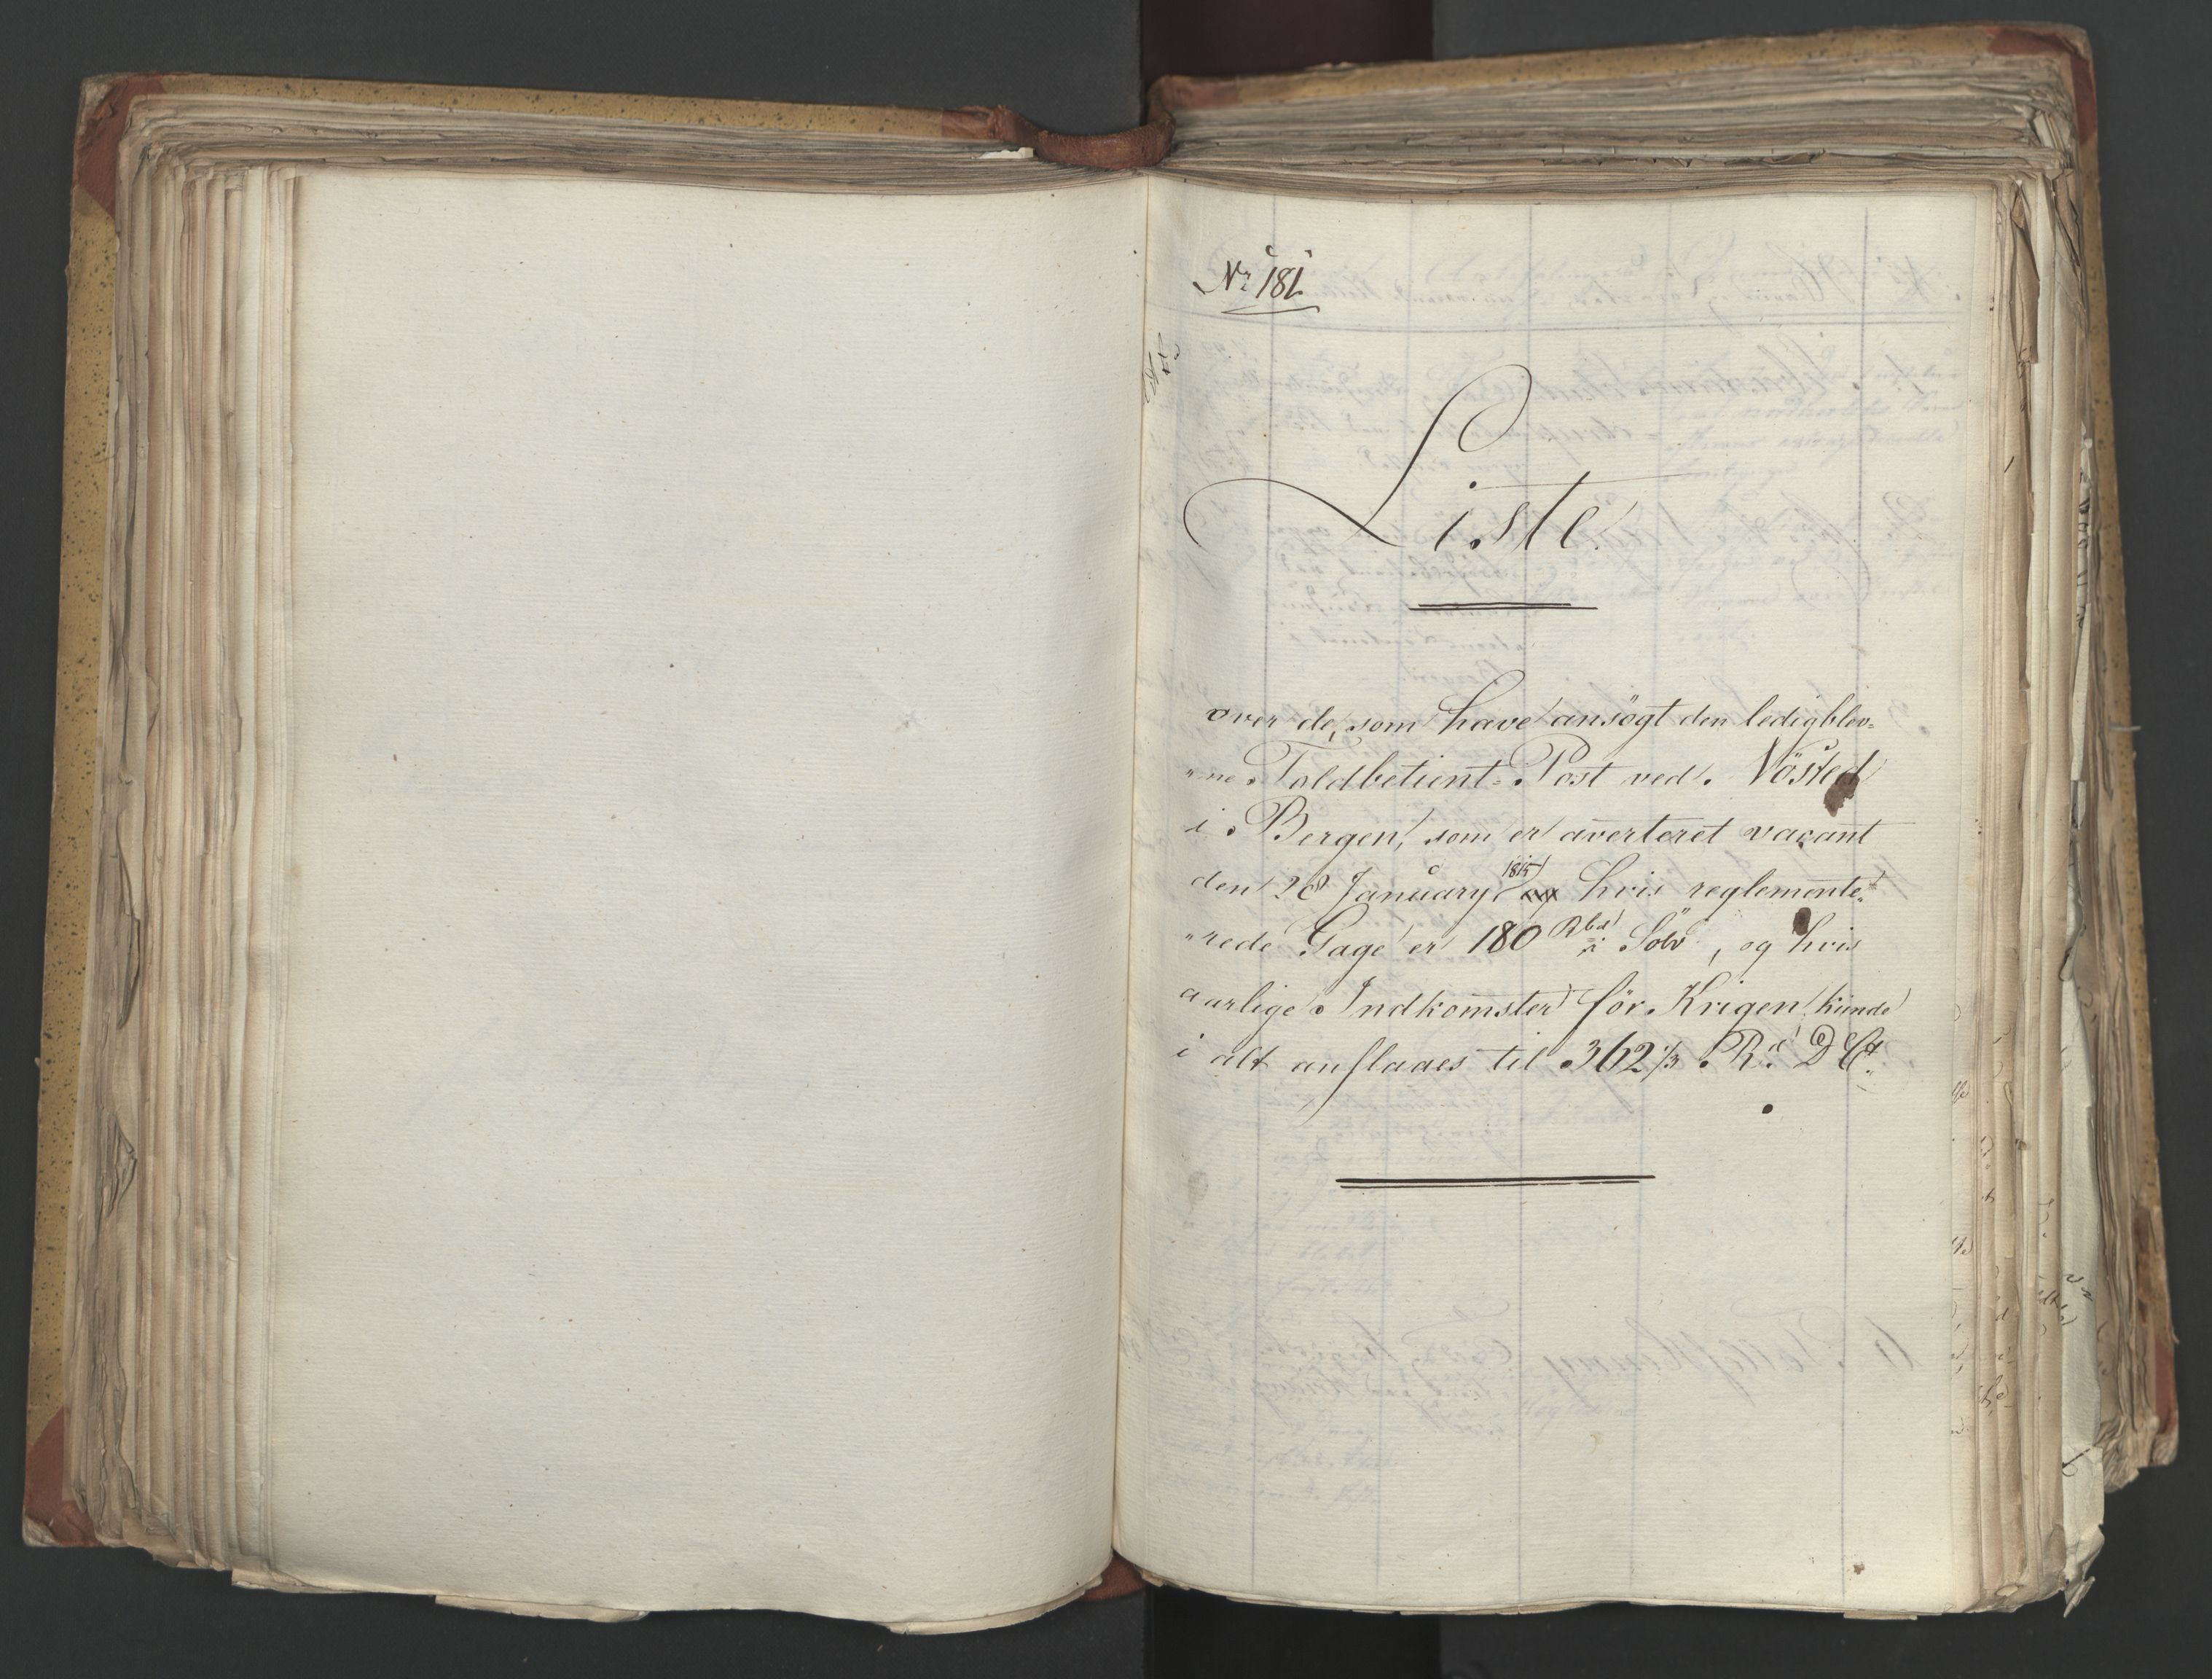 No 181.
Liste
over de, som have ansögt den ledigblev-
"ne Toldbetient-Post ved Nösted
i Bergen, som er averteret vacant
den 28 January 1815 hvis reglemente-
"rede Gage er 180 Rbd i Sölv, og hvis
aarlige Indkomster för Krigen kunde
i alt anslaaes til 362 1/3 Rd D Ct.